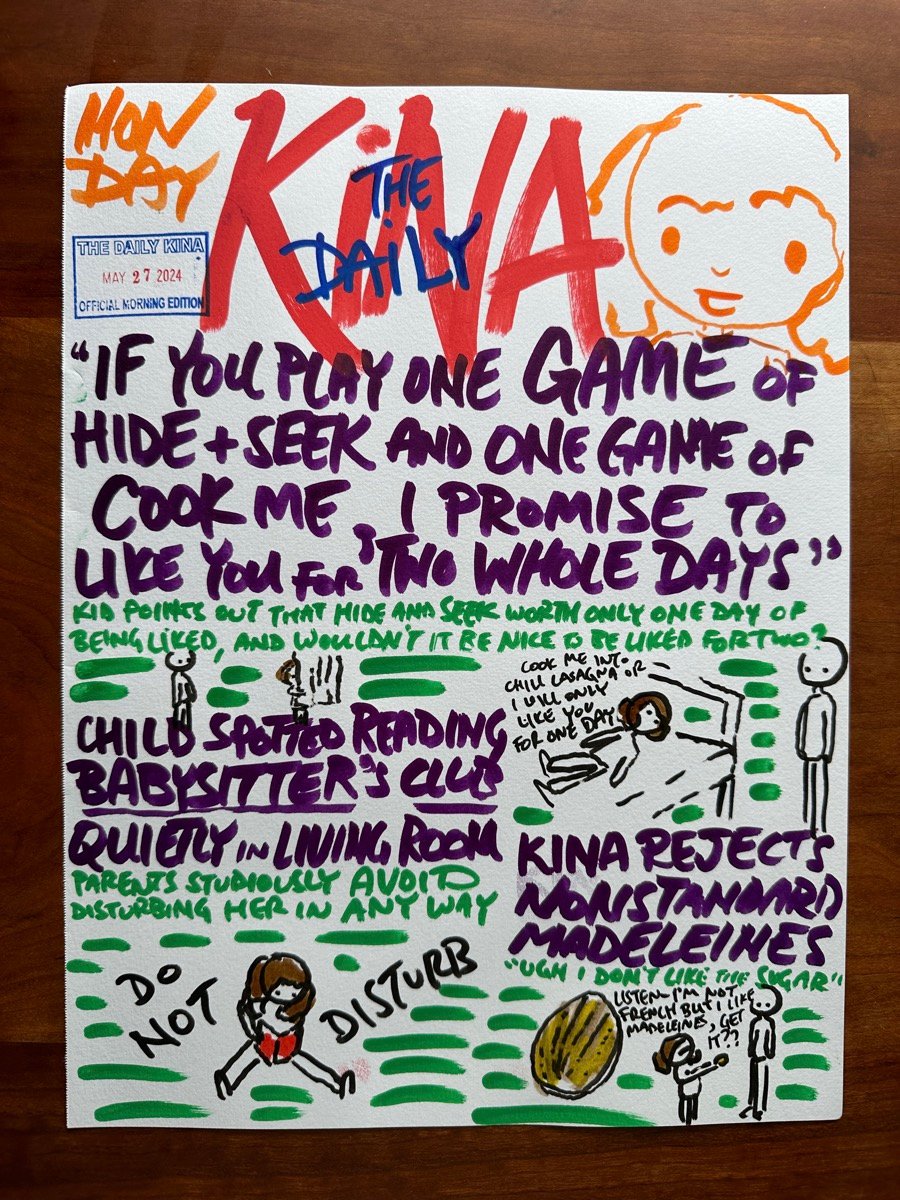 MON
DAY
THE DAILY KINA
MAY 27 2024
OFFICIAL MORNING EDITION
THE
DAiLY
KiNA
"IF YOU PLAY ONE GAME OF
HIDE + SEEK AND ONE GAME OF
COOK ME, I PROMISE TO
LIKE YOU FOR TWO WHOLE DAYS"
KID POINTS OUT THAT HIDE AND SEEK WORTH ONLY ONE DAY OF
BEING LIKED, AND WOULDN'T IT BE NICE TO BE LIKED FOR TWO?
CHILD SPOTTED READING
BABYSITTER'S CLUB
QUIETLY IN LIVING ROOM
PARENTS STUDIOUSLY AVOID
DISTURBING HER IN ANY WAY
DO
NOT
DISTURB
COOK ME INTO
CHILI LASAGNA OR
I WILL ONLY
LIKE YOU
FOR ONE DAY
KINA REJECTS
NONSTANDARD
MADELEINES
"UGH I DON'T LIKE THE SUGAR"
LISTEN- I'M NOT
FRENCH BUT I LIKE
MADELEINES, GET
IT??